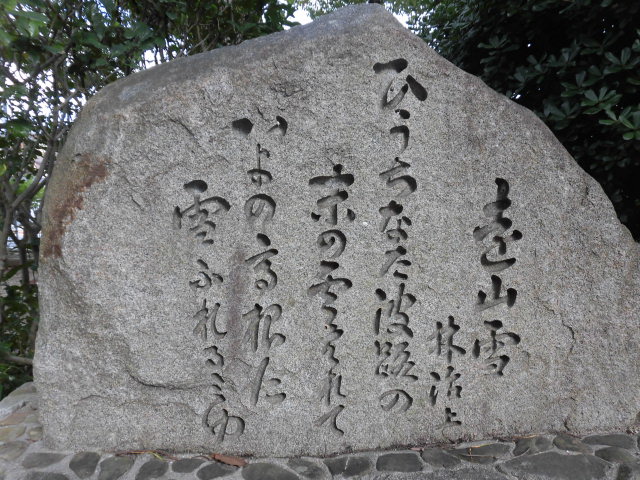 遠山雪
林治上
ひうちなた波路の
末の雲はれて
いよの高根に
雪ふれるミゆ